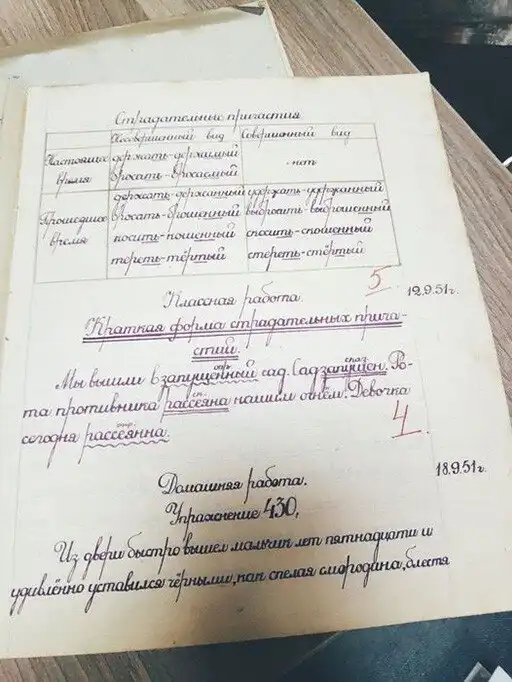 Страдательные причастия
Несовершенный вид Совершенный вид
Настоящее время держать-держимый бросать-бросаемый - нет
Прошедшее время держать-держанный удержать-удержанный
бросать-брошенный выбросить-выброшенный
косить-кошенный скосить-скошенный
тереть-тёртый стереть-стёртый
5
12.9.51г.
Классная работа.
Краткая форма страдательных прича-
стий.
опр. сказ.
Мы вышли в запущенный сад. Сад запущен. Ро-
ск.
та противника рассеяна нашим огнём. Девочка
сегодня рассеянна.
4.
18.9.51г.
Домашняя работа.
Упражнение 430.
Из двери быстро вышел мальчик лет пятнадцати и
удивлённо уставился чёрными, как спелая смородина, блестя